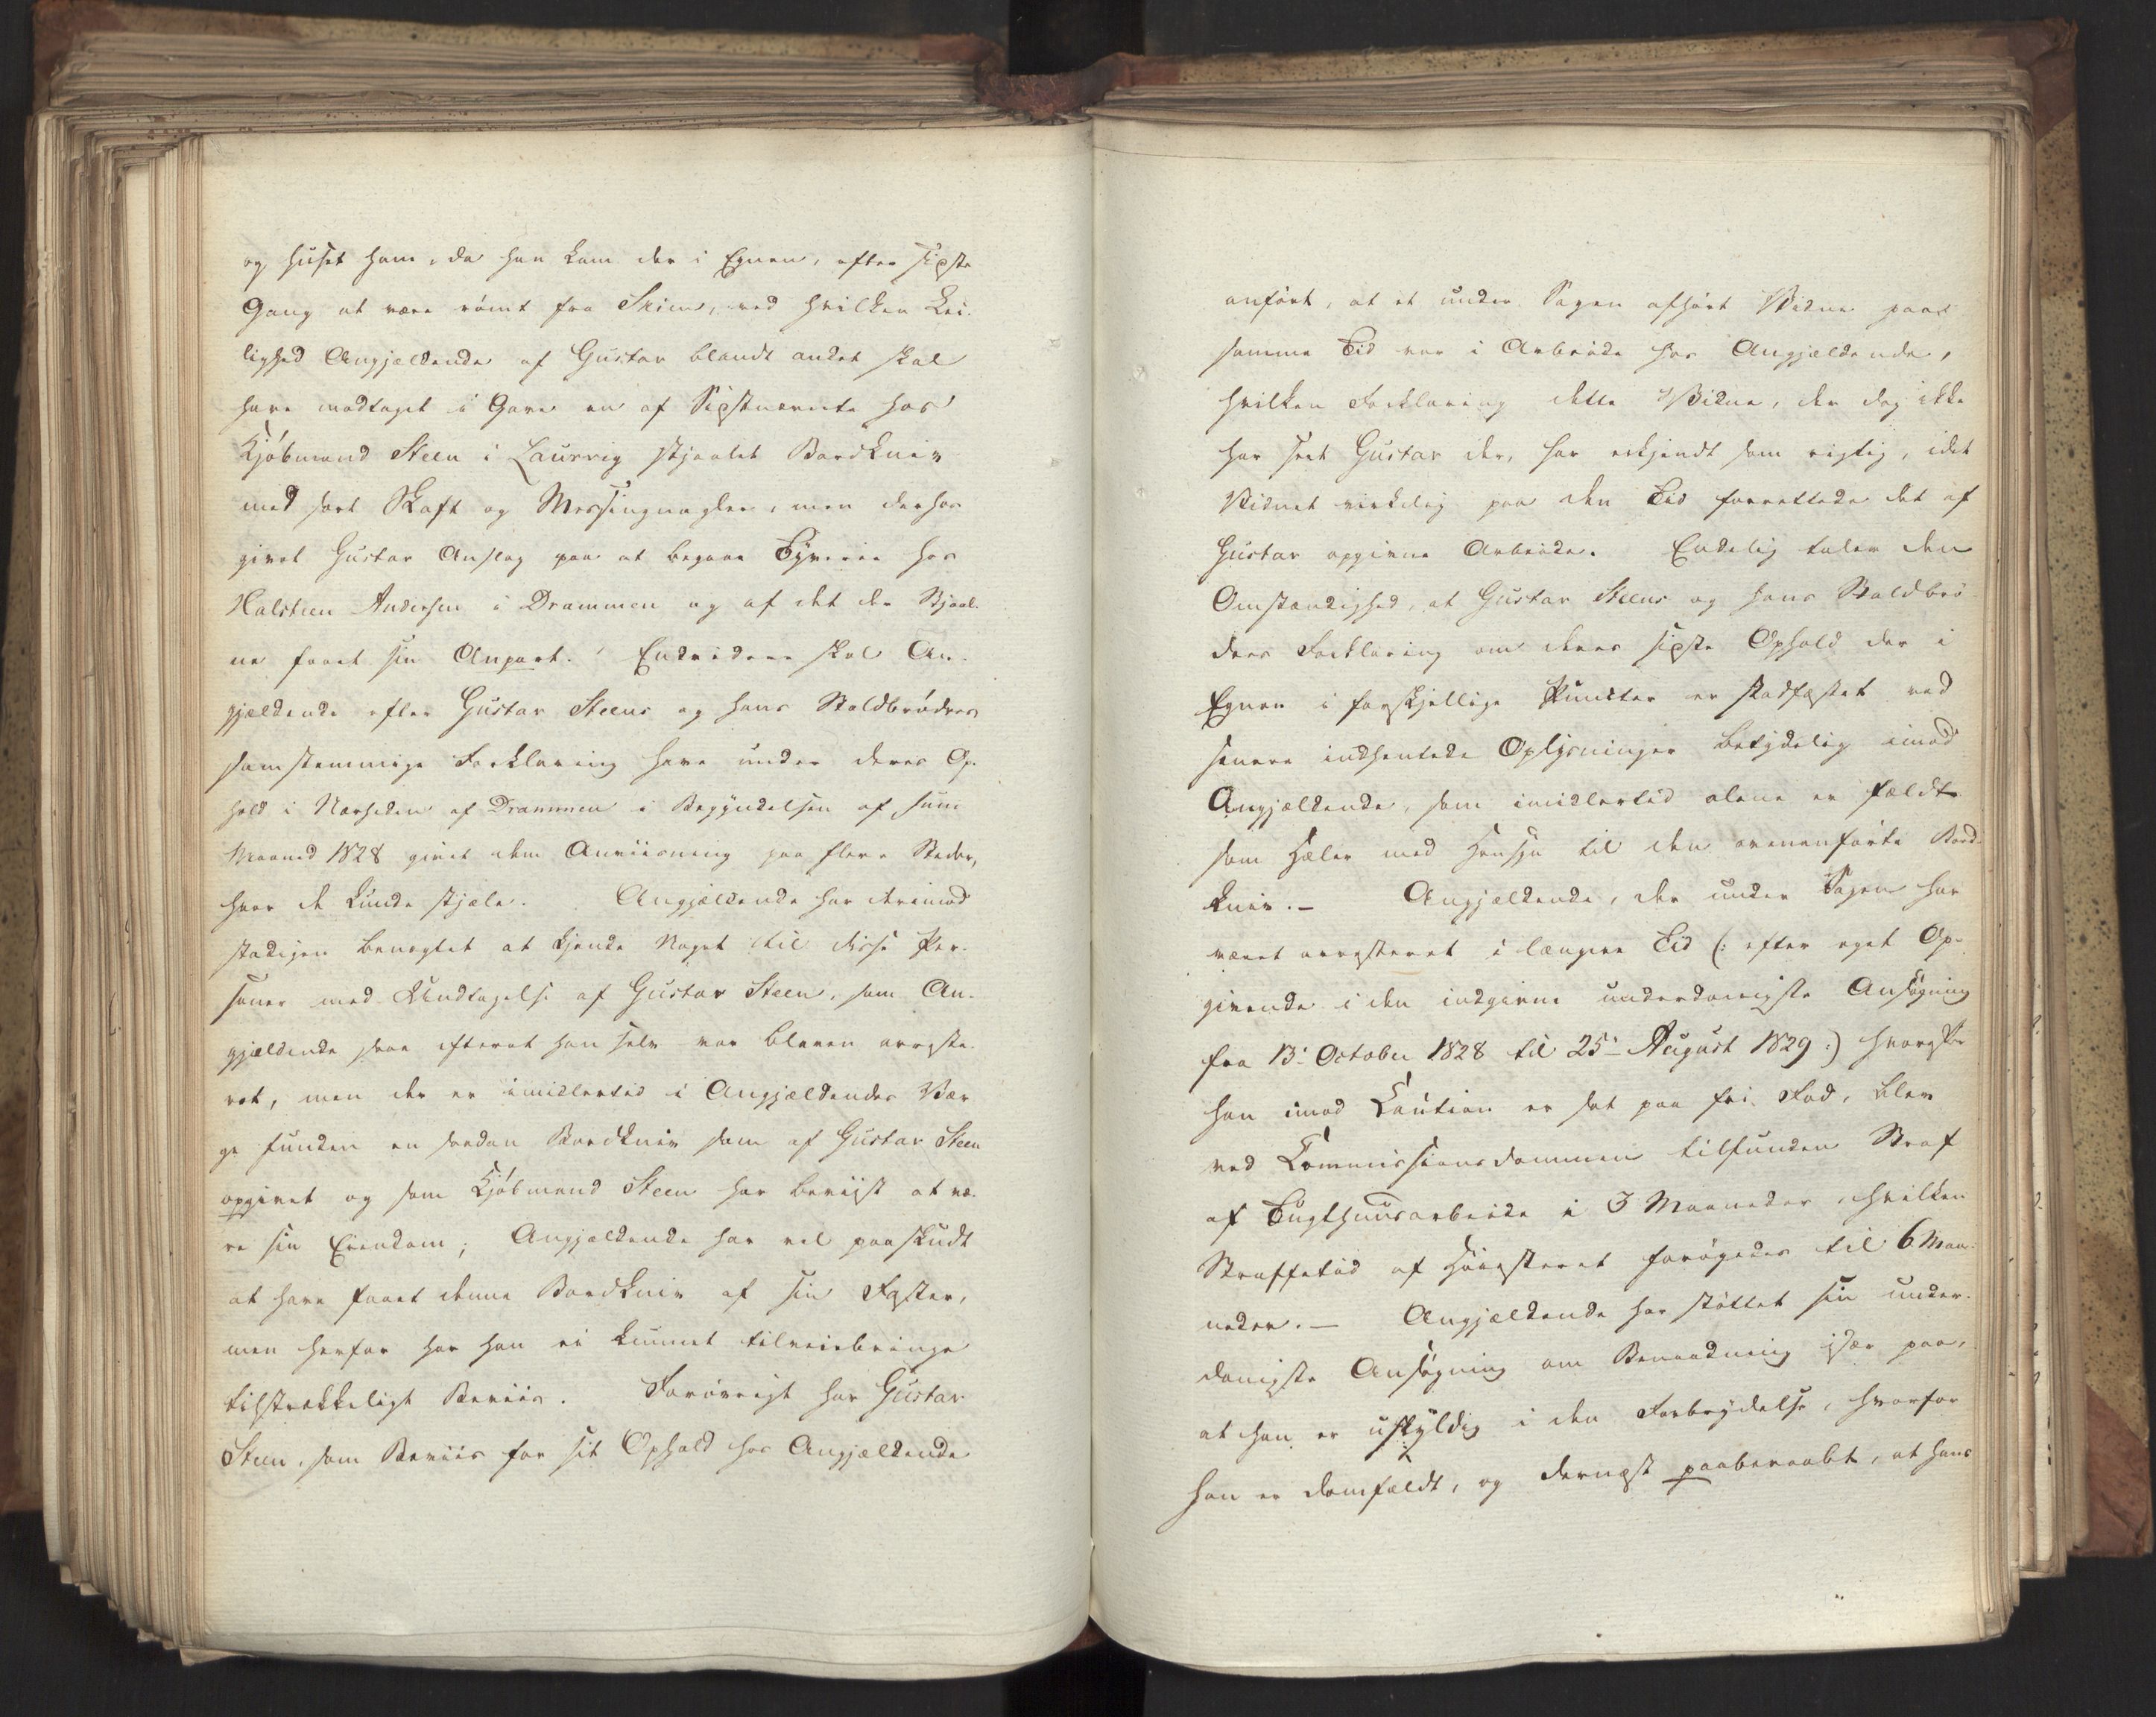 og huset ham, da han kom der i Egnen, efter sidste
Gang at være rømt fra Skien, ved hvilken Lei-
lighed Angjældende af Gustav blandt andet skal
have modtaget i Gave en af Sidstnævnte hos
Kjøbmand Steen i Laurvig stjaalet Bordkniv
med sort Skaft og Messingnagler, men derhos
givet Gustav Anslag paa at begaae Tyverie hos
Halstien Andersen i Drammen og af det der Stjaal-
ne faaet sin Anpart. Endvidere skal An-
gjældende efter Gustav Steens og hans Staldbrødres
samstemmige Forklaring have under deres Op-
hold i Nærheden af Drammen i Begyndelsen af Juni
Maaned 1828 givet dem Anviisning paa flere Steder,
hvor de kunde stjæle. Angjældende har derimod
stadigen benægtet at kjende Noget til disse Per-
soner med Undtagelse af Gustav Steen, som An-
gjældende saae efterat han selv var bleven arreste-
ret, men der er imidlertid i Angjældendes Vær-
ge funden en saadan Bordkniv som af Gustav Steen
opgivet og som Kjøbmand Steen har beviist at væ-
re sin Eiendom; Angjældende har vel paaskudt
at have faaet denne Bordkniv af sin Søster,
men herfor har han ei kunnet tilveiebringe
tilstrækkeligt Beviis. Forøvrigt har Gustav
Steen, som Beviis for sit Ophold hos Angjældende
anført, at et under Sagen afhørt Vidne paa
samme Tid var i Arbeide hos Angjældende,
hvilken Forklaring dette Vidne, der dog ikke
har seet Gustav der, har erkjendt som rigtig, idet
Vidnet virkelig paa den Tid forrettede det af
Gustav opgivne Arbeide. Endelig taler den
Omstændighed, at Gustav Steens og hans Staldbrø-
dres Forklaring om deres sidste Ophold der i
Egnen i forskjellige Puncter er stadfæstet ved
senere indhentede Oplysninger betydelig imod
Angjældende, som imidlertid alene er fældt
som Hæler med Hensyn til den ovenanførte Bord-
kniv.— Angjældende, der under Sagen har
været arresteret i længere Tid (: efter eget Op-
givende i den indgivne underdanigste Ansøgning
fra 13. October 1828 til 25. August 1829:) hvorefter
han imod Caution er sat paa fri Fod, blev
ved Commissionsdommen tilfunden Straf
af Tugthuusarbeide i 3 Maaneder, hvilken
Straffetid af Høiesteret forøgedes til 6 Maa-
neder.— Angjældende har støttet sin under-
danigste Ansøgning om Benaadning især paa,
at han er uskyldig i den Forbrydelse, hvorfor
han er domfældt, og dernæst paaberaabt, at hans